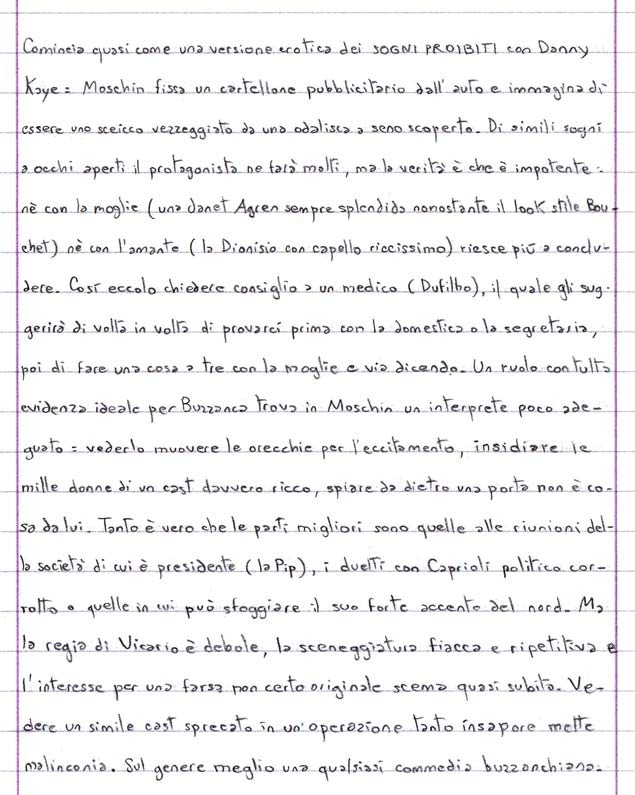 Comincia quasi come una versione erotica dei SOGNI PROIBITI con Danny
Kaye: Moschin fissa un cartellone pubblicitario dall'auto e immagina di
essere uno sceicco vezzeggiato da una odalisca a seno scoperto. Di simili sogni
a occhi aperti il protagonista ne farà molti, ma la verità è che è impotente:
nè con la moglie (una Janet Agren sempre splendida nonostante il look stile Bou-
chet) nè con l'amante (la Dionisio con capello riccissimo) riesce più a conclu-
dere. Così eccolo chiedere consiglio a un medico (Dufilho), il quale gli sug-
gerirà di volta in volta di provarci prima con la domestica o la segretaria,
poi di fare una cosa a tre con la moglie e via dicendo. Un ruolo con tutta
evidenza ideale per Buzzanca trova in Moschin un interprete poco ade-
guato: vederlo muovere le orecchie per l'eccitamento, insidiare le
mille donne di un cast davvero ricco, spiare da dietro una porta non è co-
sa da lui. Tanto è vero che le parti migliori sono quelle alle riunioni del-
la società di cui è presidente (la Pip), i duetti con Caprioli politico cor-
rotto o quelle in cui può sfoggiare il suo forte accento del nord. Ma
la regia di Vicario è debole, la sceneggiatura fiacca e ripetitiva e
l'interesse per una farsa non certo originale scema quasi subito. Ve-
dere un simile cast sprecato in un'operazione tanto insapore mette
malinconia. Sul genere meglio una qualsiasi commedia buzzanchiana.